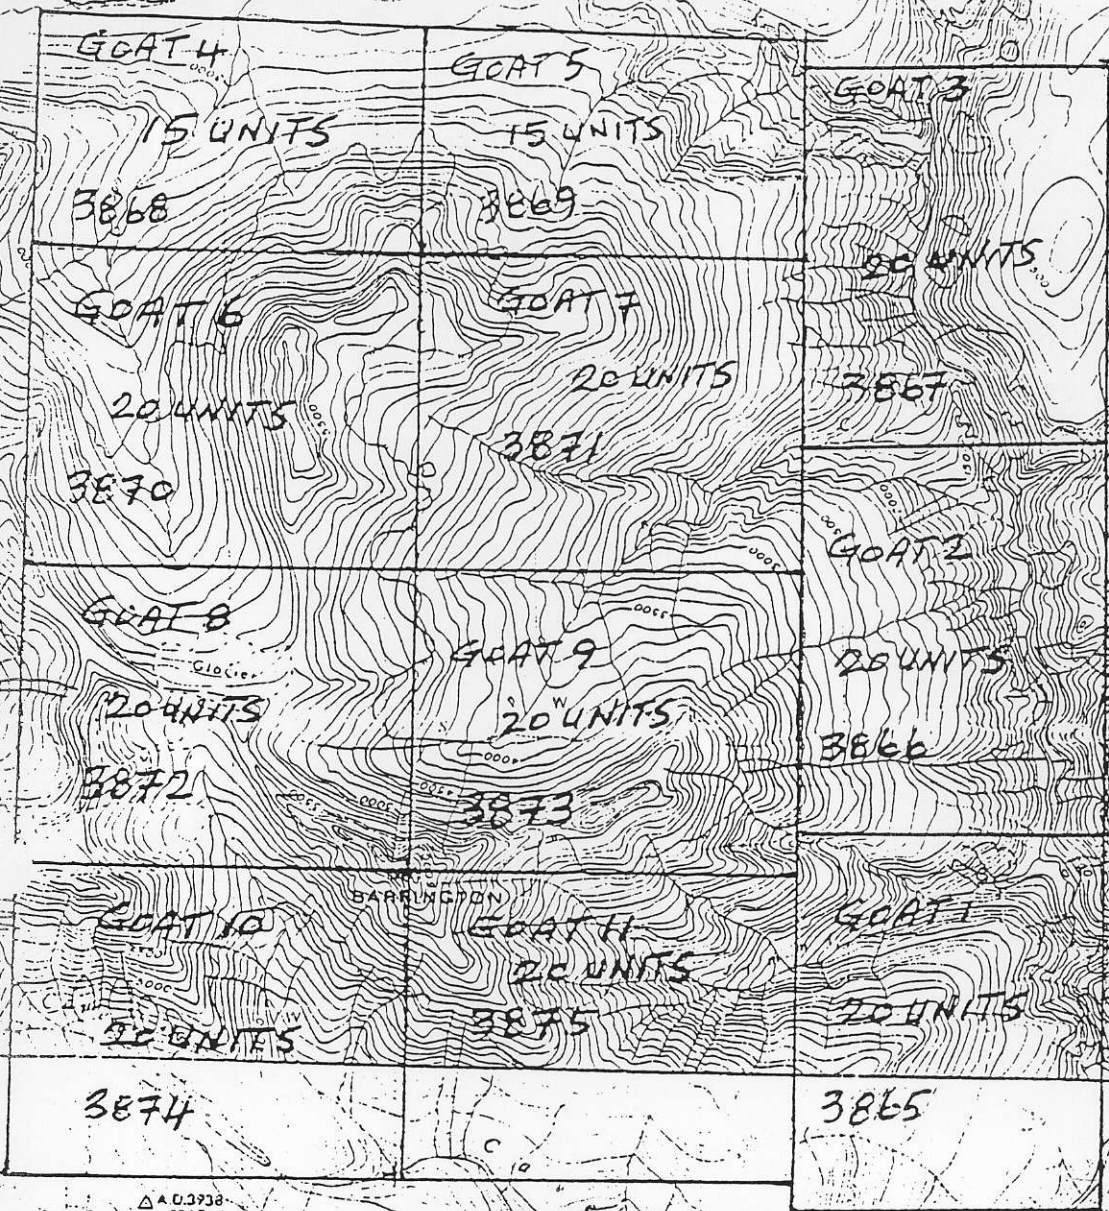 GOAT 4
15 UNITS
3868
GOAT 5
15 UNITS
3869
GOAT 3
20 UNITS
3867
GOAT 6
20 UNITS
3870
GOAT 7
20 UNITS
3871
GOAT 2
20 UNITS
3866
GOAT 8
Glacier
20 UNITS
3872
GOAT 9
20 UNITS
3873
BARRINGTON
GOAT 10
20 UNITS
3874
GOAT 11
20 UNITS
3875
GOAT 1
20 UNITS
3865
5000
3500
4000
5000
3000
A.D.3938